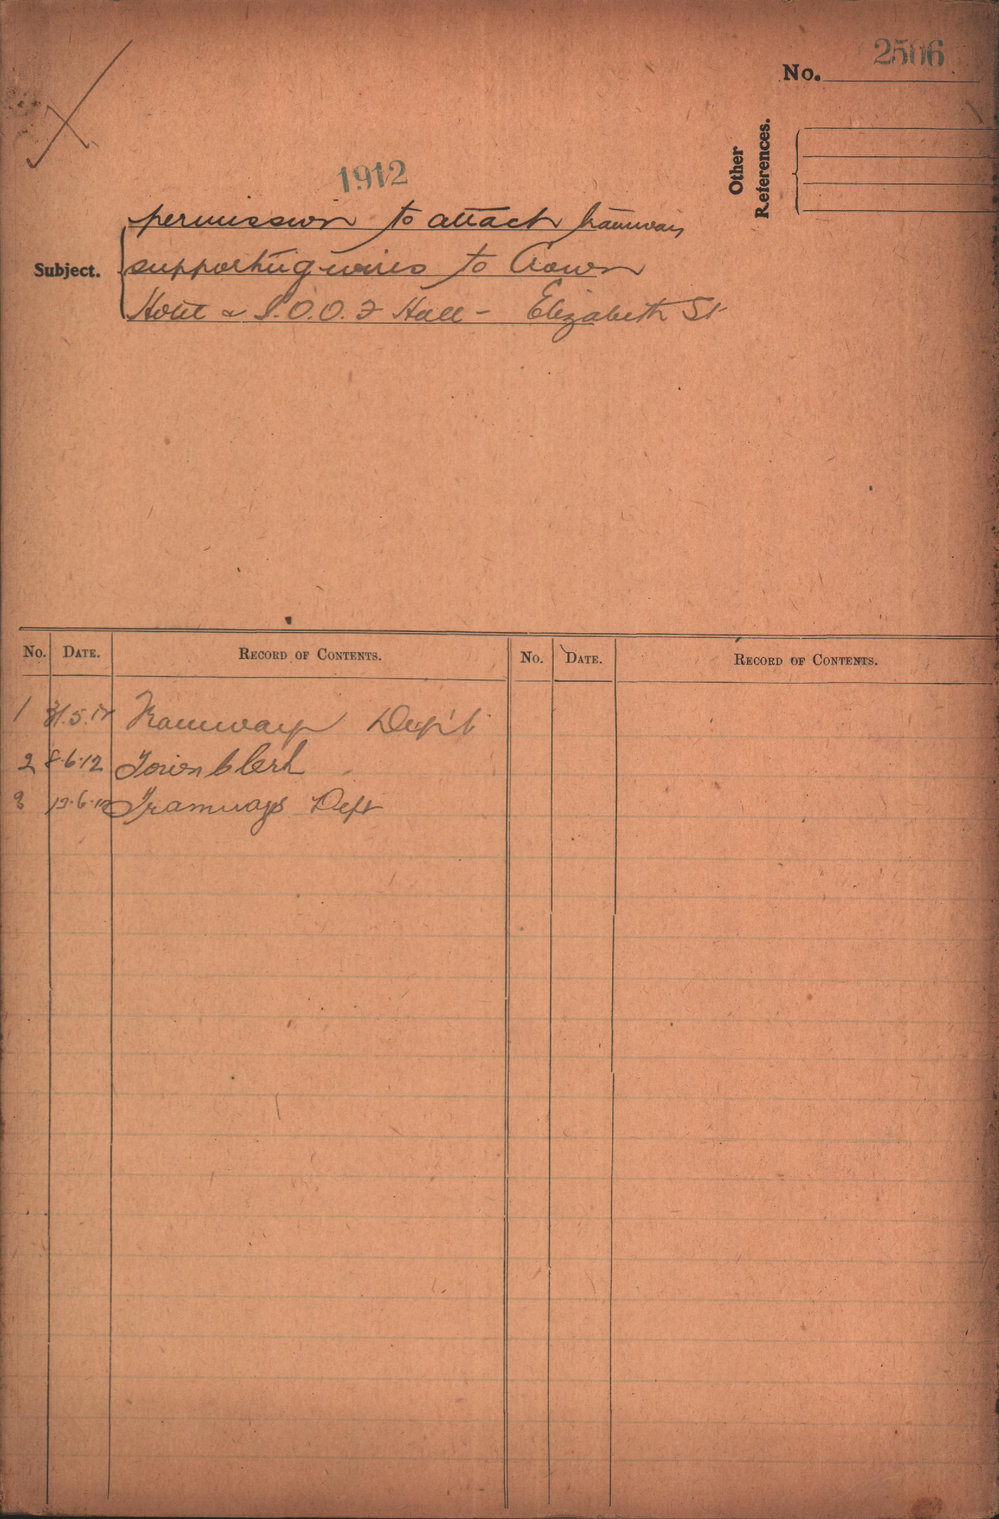 No. 2506
Other
References.
1912
Subject.
permission to attach tramway
supporting wires to Crown
Hotel & I.O.O.F Hall - Elizabeth St
No. DATE. RECORD OF CONTENTS. No. DATE. RECORD OF CONTENTS.
1 31.5.12 Tramways Dep't
2 8.6.12 Town Clerk
3 19.6.12 Tramways Dept